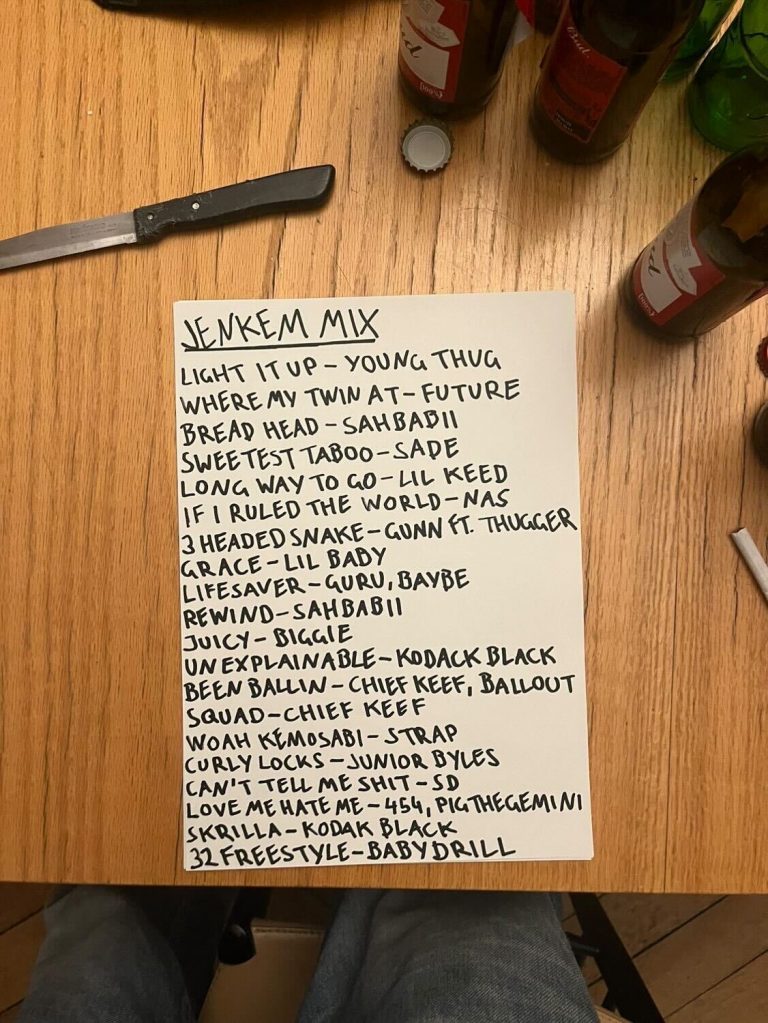 Bud
JENKEM MIX
LIGHT IT UP – YOUNG THUG
WHERE MY TWIN AT – FUTURE
BREAD HEAD – SAHBABII
SWEETEST TABOO – SADE
LONG WAY TO GO – LIL KEED
IF I RULED THE WORLD – NAS
3 HEADED SNAKE – GUNN FT. THUGGER
GRACE – LIL BABY
LIFESAVER – GURU, BAYBE
REWIND – SAHBABII
JUICY – BIGGIE
UNEXPLAINABLE – KODACK BLACK
BEEN BALLIN – CHIEF KEEF, BALLOUT
SQUAD – CHIEF KEEF
WOAH KEMOSABI – STRAP
CURLY LOCKS – JUNIOR BYLES
CAN'T TELL ME SHIT – SD
LOVE ME HATE ME – 454, PIGTHEGEMINI
SKRILLA – KODAK BLACK
32 FREESTYLE – BABYDRILL